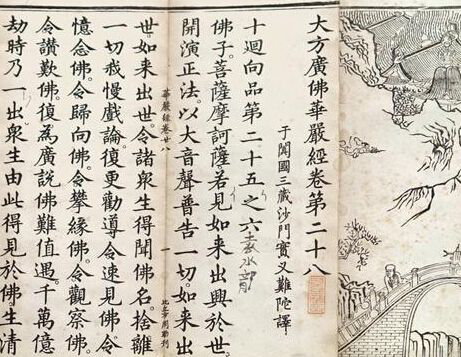 大方廣佛華嚴經卷第二十八
于闐國三藏沙門實叉難陀譯
十迴向品第二十五之六
佛子。菩薩摩訶薩若見如来出興於世。
開演正法。以大音聲普告一切。如来出
華嚴經卷廿八
一
世。如来出世。令諸衆生得聞佛名。捨離
一切我慢戲論。復更勸導。令速見佛。令
憶念佛。令歸向佛。令攀緣佛。令觀察佛。
令讚歎佛。復為廣說佛難值遇。千萬億
劫時乃一出。衆生由此得見於佛。生清